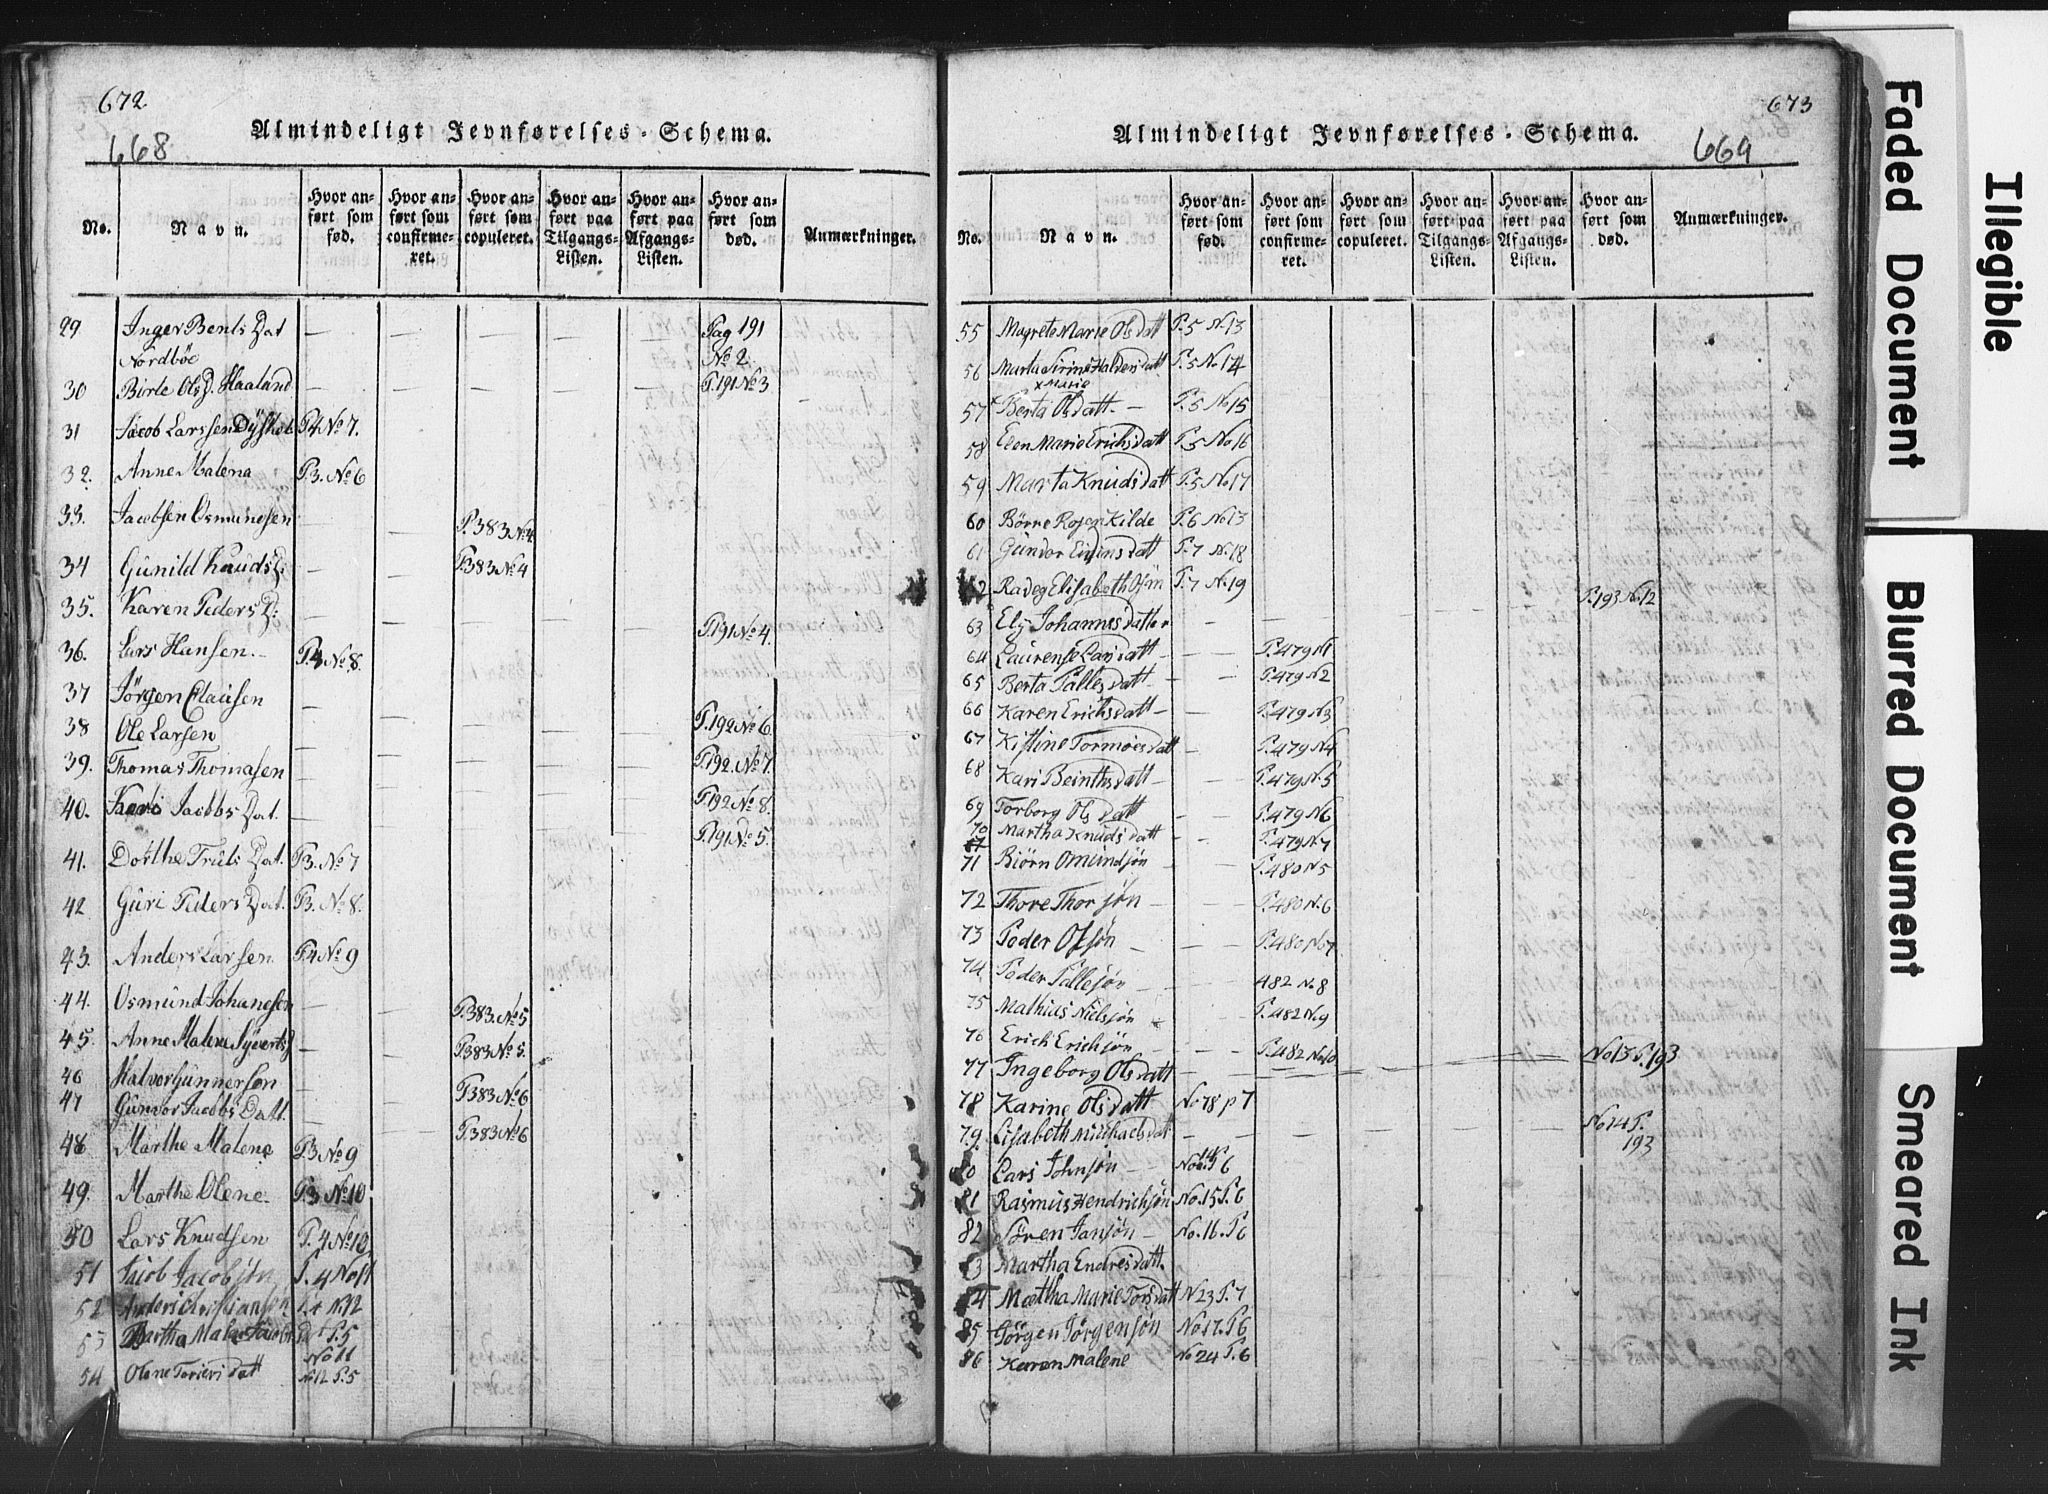 672
668
Almindeligt Jevnførelses-Schema.
No. Navn. Hvor anført som fød. Hvor anført som confirmeret. Hvor anført som copuleret. Hvor anført paa Tilgangs-Listen. Hvor anført paa Afgangs-Listen. Hvor anført som død. Anmærkninger.
29 Inger Bents Dat — Pag 191
Nordbøe No 2
30 Birte Ols D. Haaland — P.191 No 3
31 Jacob Larssen P4 No 7.
32. Anne Malena P3. No 6
33. Jacobsen Osmundsen — P.383 No 4
34 Gunild Knuds D: — P.383 No 4
35. Karen Peders D: — P.191 No 4.
36. Lars Hansen. P.4 No 8.
37 Jørgen Clausen —
38 Ole Larsen — P.192 No 6.
39. Thomas Thomasen — P.192. No 7.
40. Kari Jacobs Dat. — P.192 No 8.
P.191 No 5.
41. Dorthe Truls Dat. P3. No 7
42 Guri Peders Dat. P3. No 8.
43. Anders Larsen P4 No 9
44. Osmund Johansen — P.383. No 5
45. Anne Malene Syverts D — P.383 No 5.
46 Halvor Gunnerson — P.383 No 6
47 Gunvor Jacobs Datt. — P.383 No 6
48 Marthe Malene P.3 No 9
49. Marthe Olene. P.3 No 10
50 Lars Knudsen P. 4 No 10
51 Jacob Jacobsøn P. 4 No 11
52 Anders Christiansøn P.4 N12
53 Martha Malene Jacobs Da P.5
No 11
54 Olene Torieri datt No 12 P.5
673
669
Almindeligt Jevnførelses-Schema.
No. Navn. Hvor anført som fød. Hvor anført som confirmeret. Hvor anført som copuleret. Hvor anført paa Tilgangs-Listen. Hvor anført paa Afgangs-Listen. Hvor anført som død. Anmærkninger.
55 Magrete Marie Olsdatt P.5 No 13
56 Marta Sirine Haldersdatt P.5 No 14
x Marie
57 x Berta Olsdatt. — P.5 No 15
58 Elen Marie Erichsdatt P.5 No 16
59 Marta Knudsdatt P.5 No 17
60 Børre Rosenkilde P.6 No 13
61 Gundor Eivinsdatt P.7 No 18
2 Elisabeth P.7 No 19
P.193 No 12
63 Ely Johannesdatter —
64 Laurense Larsdatt — P.479 N1
65 Berta Pallesdatt — P.479 N2
66 Karen Erichsdatt — P.479 N3
67 Kistine Tormoesdatt — P.479 N4
68 Kari Beinthsdatt — P.479 N.5
69 Torborg Olsdatt — P.479 N6
70 Martha Knudsdatt — P.479 N7
71 Biørn Omundsøn — P.480 N5
72 Thore Thorsøn — P.480 N.6
73 Peder Olsøn — P.480 No 7
74 Peder Pallesøn — 482 No 8
75 Mathias Nielsøn P.482 N9
76 Erich Erichsøn — P.482 No 10
77 Ingeborg Olsdatt — No 13 P.193
78 Karine Olsdatt No 18 p 7
79 Lisabeth Michaelsdat — No 14 P.
193
0 Lars Johnsøn — No 14 P 6
81 Rasmus Hendrichsøn No. 15 P.6
82 Søren Jansøn — No. 16. P6
3 Martha Endresdatt.
4 Mattha Marie Torsdatt N 23 P.7
85 Jørgen Jørgensøn No 17. P6
86 Karen Malene No 24 P.6
Illegible
Faded Document
Blurred Document
Smeared Ink